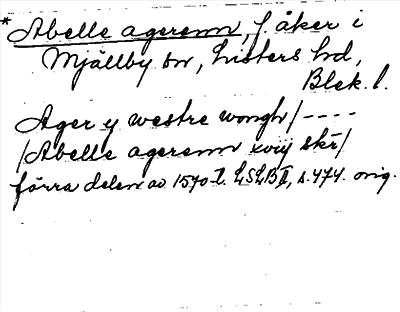 *Abelle agerenn, f. åker i
Mjällby sn, Listers hd,
Blek. l.
Ager y westre wongh/----
/Abelle agerenn xviij skr/
förra delen av 1570-t. LSLB II, s. 474. orig.